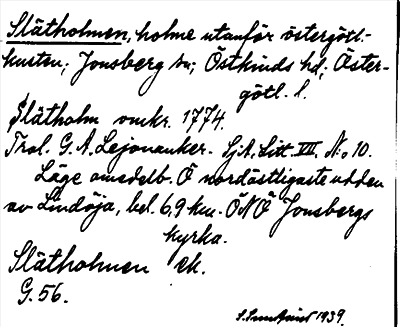 Slätholmen, holme utanför östergötl.-
kusten; Jonsberg sn; Östkinds hd; Öster-
götl. l.
Slätholm omkr. 1774.
Trol. G. A. Lejonanker. SjA, Litt. VII. No 10.
Läge omedelb. Ö nordöstligaste udden
av Lindöja, bel. 6,9 km. ÖNÖ Jonsbergs
kyrka.
Slätholmen ek.
G. 56.
1939.